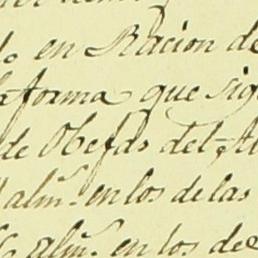 en Racion de
forma que sig
de Obejas del A
alm.s en los de las
alm.s en los de